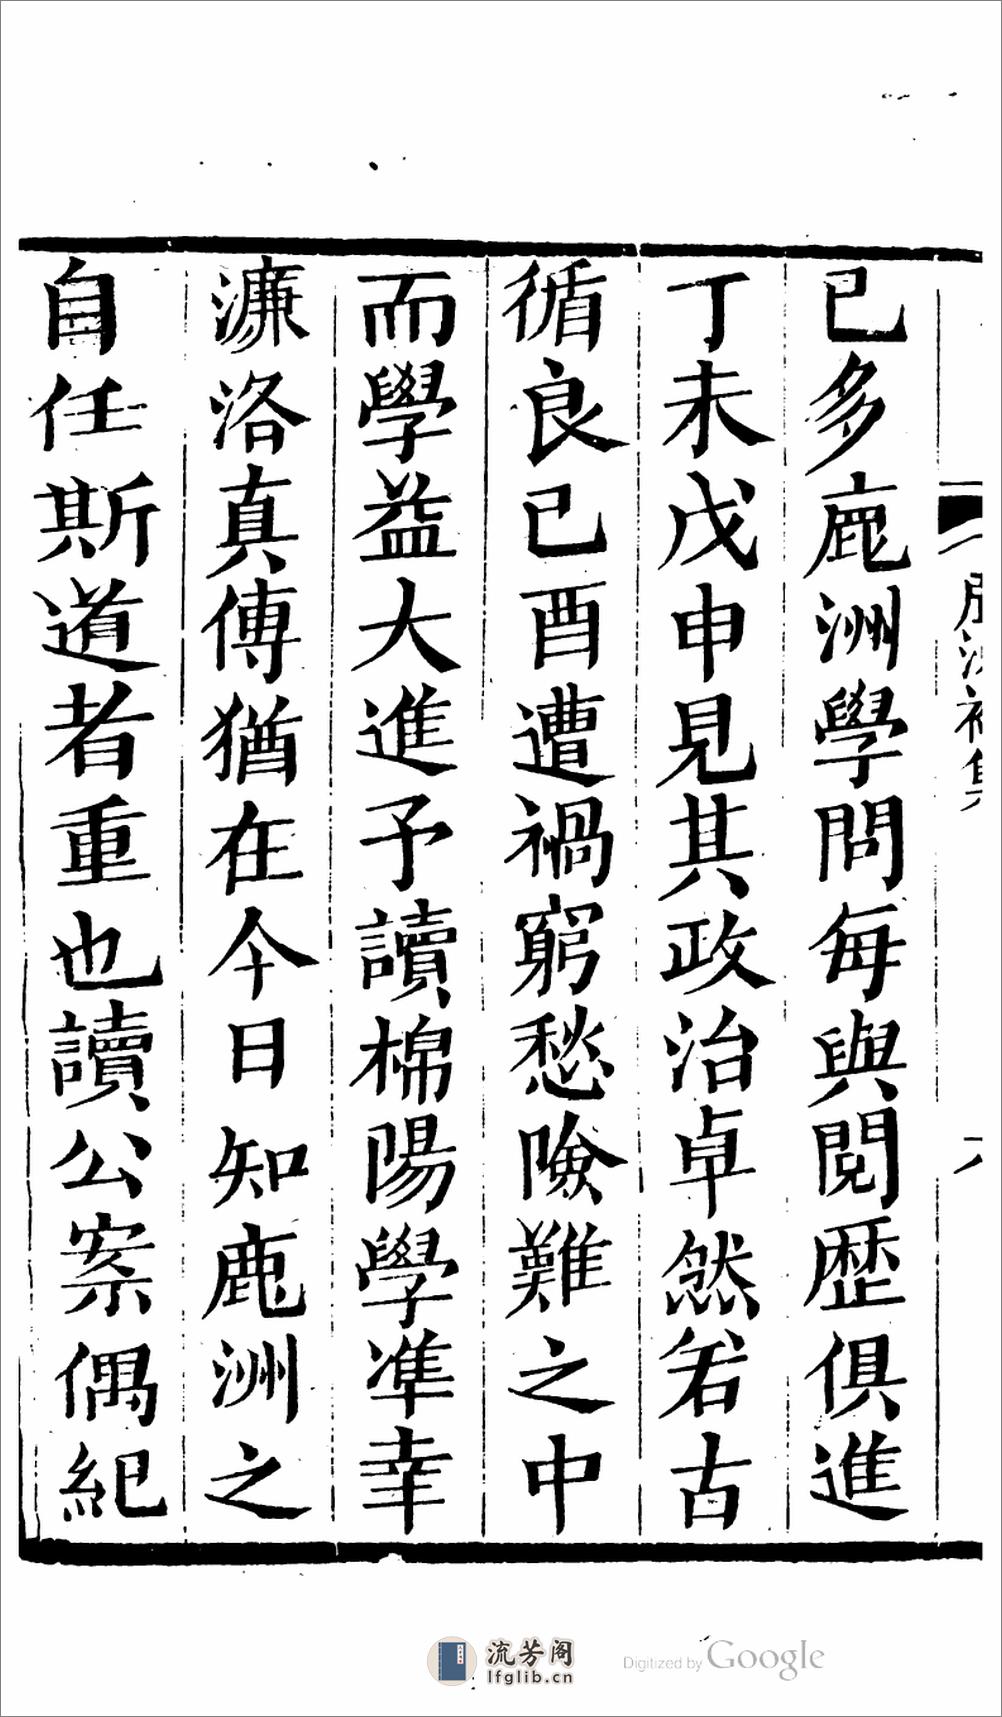 已多鹿洲學問每與閱歷俱進
丁未戊申見其政治卓然若古
循良已酉遭禍窮愁險難之中
而學益大進予讀棉陽學準幸
濂洛真傳猶在今日知鹿洲之
自任斯道者重也讀公案偶紀
流芳阁
lfglib.cn
Digitized by Google